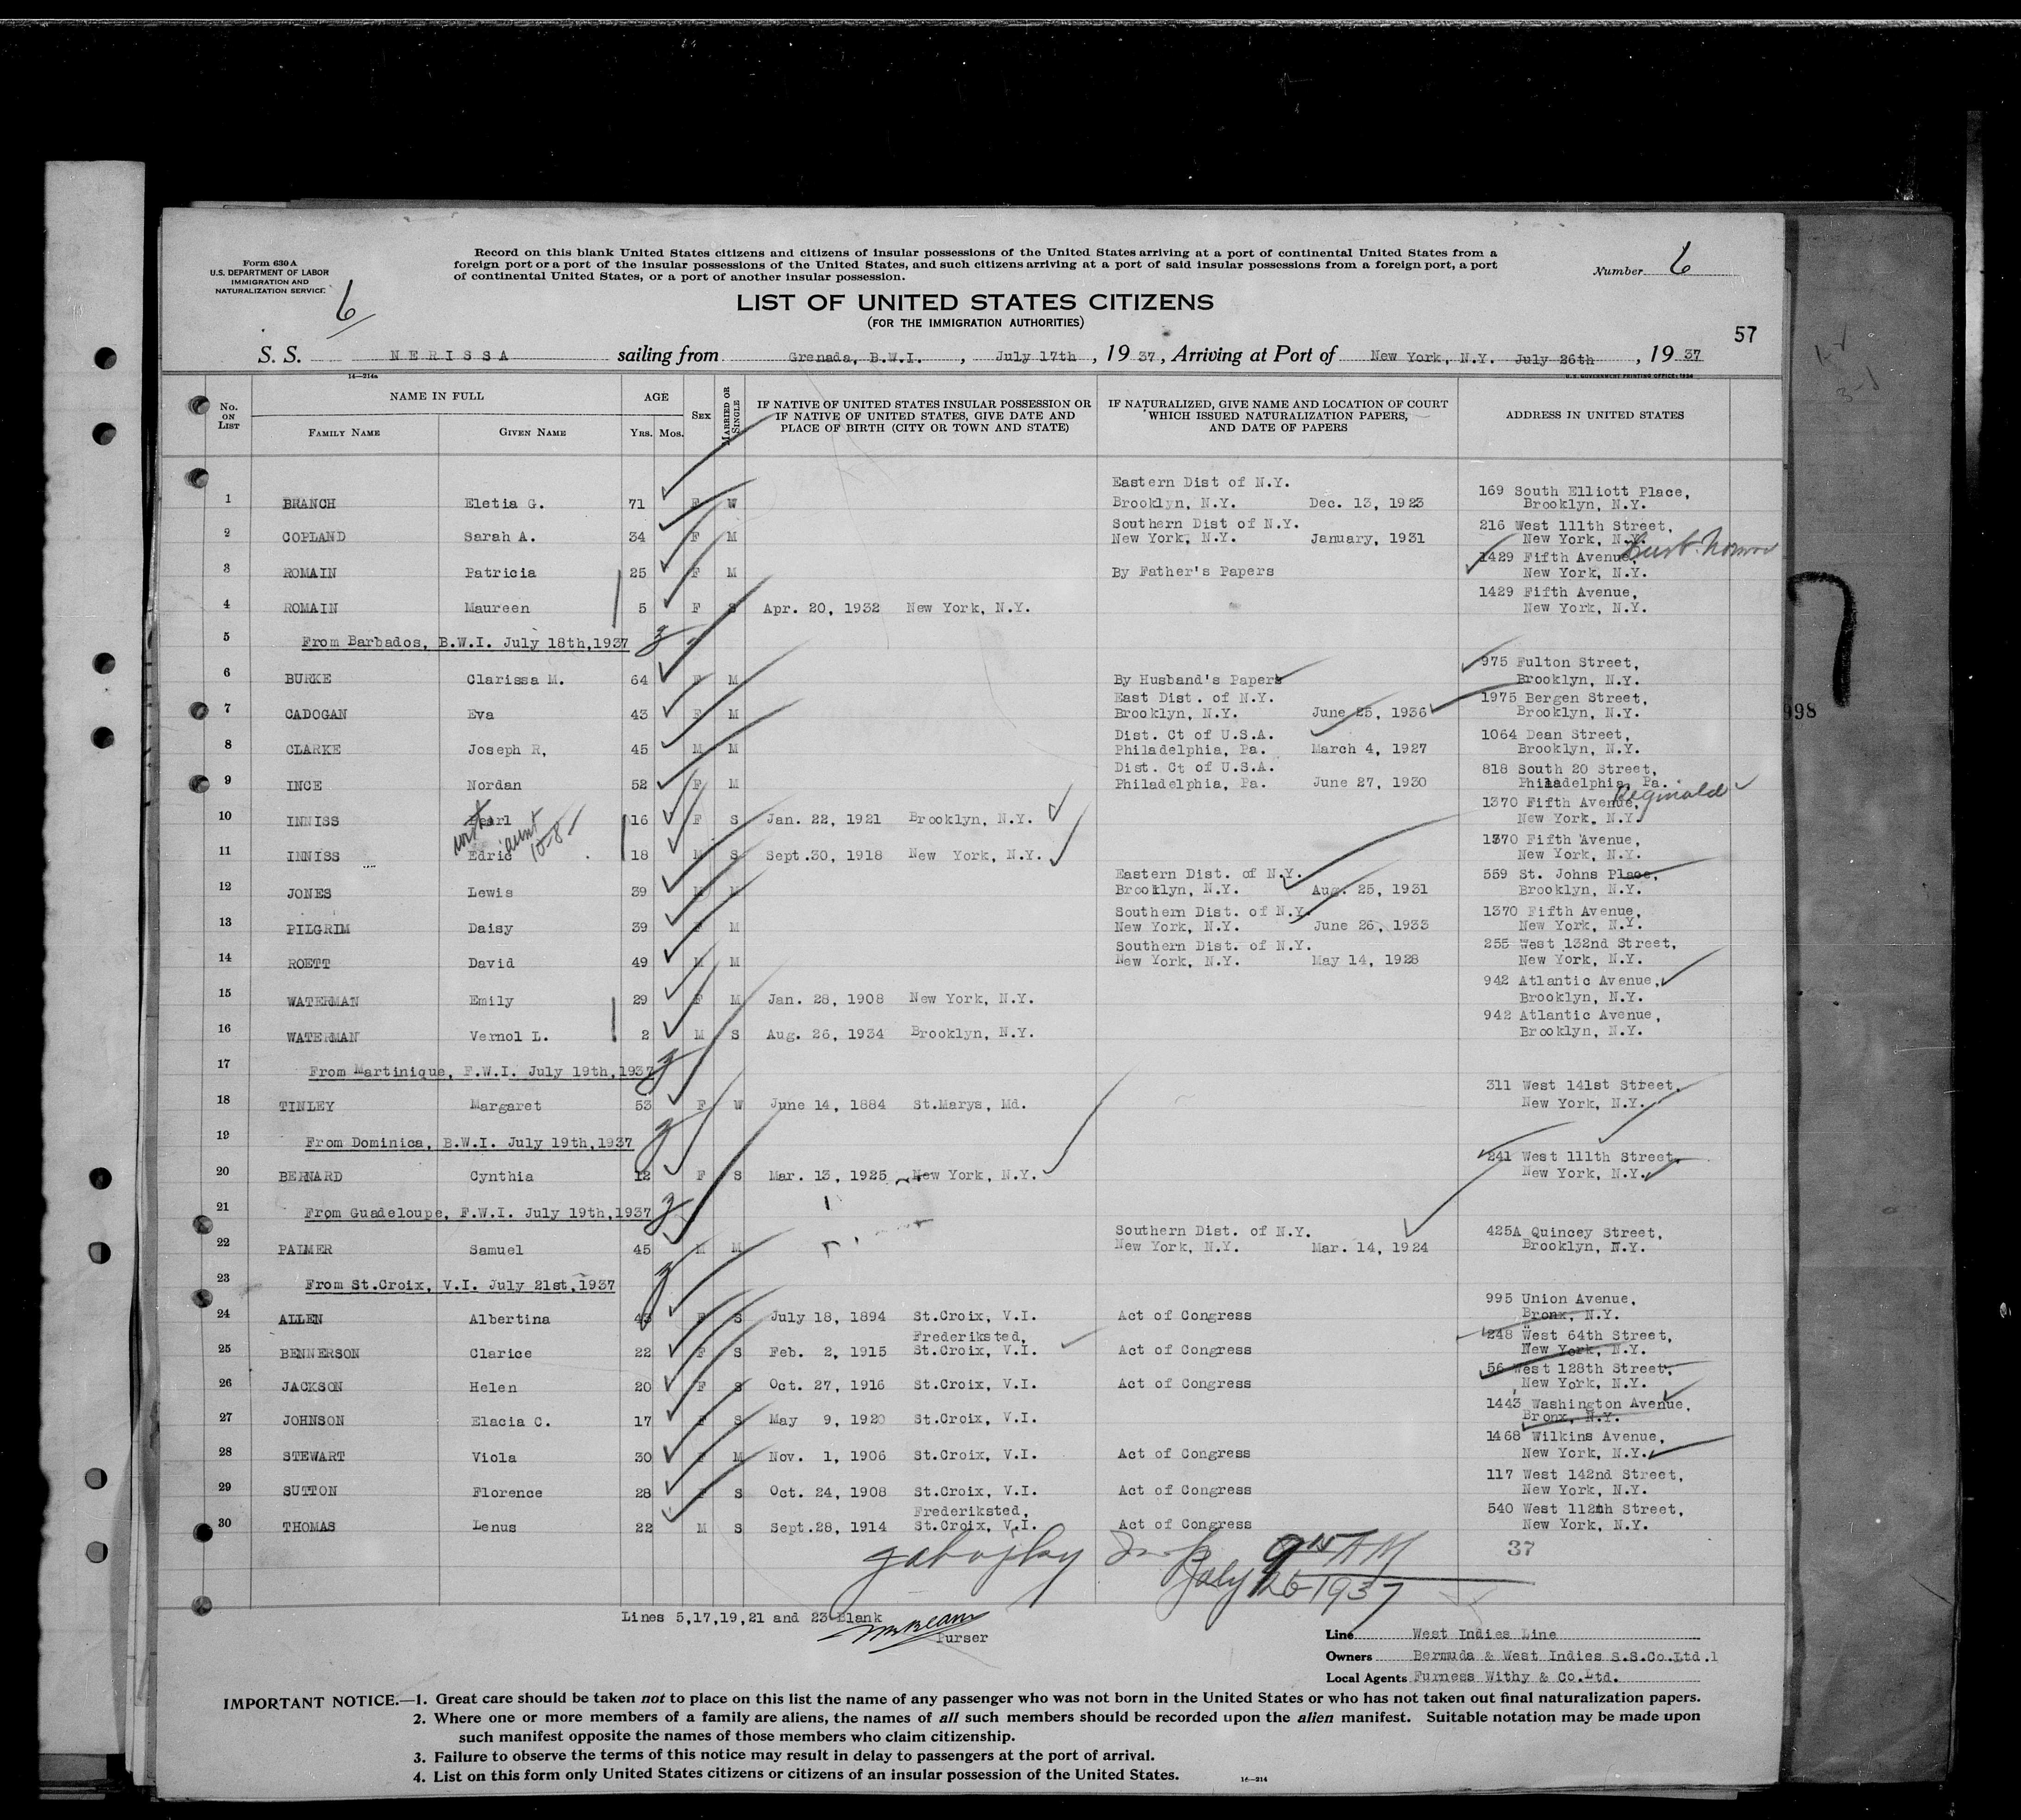 Form 630 A
U.S. DEPARTMENT OF LABOR
IMMIGRATION AND
NATURALIZATION SERVICE
6
Record on this blank United States citizens and citizens of insular possessions of the United States arriving at a port of continental United States from a
foreign port or a port of the insular possessions of the United States, and such citizens arriving at a port of said insular possessions from a foreign port, a port
of continental United States, or a port of another insular possession.
Number 6
LIST OF UNITED STATES CITIZENS
(FOR THE IMMIGRATION AUTHORITIES)
57
S. S. NERISSA sailing from Grenada, B.W.I. , July 17th , 19 37 , Arriving at Port of New York, N.Y. July 26th , 19 37
14—214a U.S. GOVERNMENT PRINTING OFFICE: 1934
No. ON LIST NAME IN FULL FAMILY NAME GIVEN NAME AGE YRS. MOS. SEX MARRIED OR SINGLE IF NATIVE OF UNITED STATES INSULAR POSSESSION OR IF NATIVE OF UNITED STATES, GIVE DATE AND PLACE OF BIRTH (CITY OR TOWN AND STATE) IF NATURALIZED, GIVE NAME AND LOCATION OF COURT WHICH ISSUED NATURALIZATION PAPERS, AND DATE OF PAPERS ADDRESS IN UNITED STATES
1 BRANCH Eletia G. 71 F W Eastern Dist of N.Y. Brooklyn, N.Y. Dec. 13, 1923 169 South Elliott Place, Brooklyn, N.Y.
2 COPLAND Sarah A. 34 F M Southern Dist of N.Y. New York, N.Y. January, 1931 216 West 111th Street, New York, N.Y.
3 ROMAIN Patricia 25 F M By Father's Papers 1429 Fifth Avenue, New York, N.Y.
4 ROMAIN Maureen 5 F S Apr. 20, 1932 New York, N.Y. 1429 Fifth Avenue, New York, N.Y.
5 From Barbados, B.W.I. July 18th,1937
6 BURKE Clarissa M. 64 F M By Husband's Papers 975 Fulton Street, Brooklyn, N.Y.
7 CADOGAN Eva 43 F M East Dist. of N.Y. Brooklyn, N.Y. June 25, 1936 1975 Bergen Street, Brooklyn, N.Y.
8 CLARKE Joseph R, 45 M M Dist. Ct of U.S.A. Philadelphia, Pa. March 4, 1927 1064 Dean Street, Brooklyn, N.Y.
9 INCE Nordan 52 F M Dist. Ct of U.S.A. Philadelphia, Pa. June 27, 1930 818 South 20 Street, Philadelphia, Pa.
Reginald
10 INNISS Pearl 16 F S Jan. 22, 1921 Brooklyn, N.Y. 1370 Fifth Avenue, New York, N.Y.
aunt
11 INNISS Edric 18 M S Sept.30, 1918 New York, N.Y. 1370 Fifth Avenue, New York, N.Y.
12 JONES Lewis 39 M M Eastern Dist. of N.Y. Brooklyn, N.Y. Aug. 25, 1931 559 St. Johns Place, Brooklyn, N.Y.
13 PILGRIM Daisy 39 F M Southern Dist. of N.Y. New York, N.Y. June 26, 1933 1370 Fifth Avenue, New York, N.Y.
14 ROETT David 49 M M Southern Dist. of N.Y. New York, N.Y. May 14, 1928 255 West 132nd Street, New York, N.Y.
15 WATERMAN Emily 29 F M Jan. 28, 1908 New York, N.Y. 942 Atlantic Avenue, Brooklyn, N.Y.
16 WATERMAN Vernol L. 2 M S Aug. 26, 1934 Brooklyn, N.Y. 942 Atlantic Avenue, Brooklyn, N.Y.
17 From Martinique, F.W.I. July 19th,1937
18 TINLEY Margaret 53 F W June 14, 1884 St.Marys, Md. 311 West 141st Street, New York, N.Y.
19 From Dominica, B.W.I. July 19th,1937
20 BERNARD Cynthia 12 F S Mar. 13, 1925 New York, N.Y. 241 West 111th Street, New York, N.Y.
21 From Guadeloupe, F.W.I. July 19th,1937
22 PALMER Samuel 45 M M Southern Dist. of N.Y. New York, N.Y. Mar. 14, 1924 425A Quincey Street, Brooklyn, N.Y.
23 From St.Croix, V.I. July 21st,1937
24 ALLEN Albertina 43 F S July 18, 1894 St.Croix, V.I. Act of Congress 995 Union Avenue, Bronx, N.Y.
25 BENNERSON Clarice 22 F S Feb. 2, 1915 Frederiksted, St.Croix, V.I. Act of Congress 248 West 64th Street, New York, N.Y.
26 JACKSON Helen 20 F S Oct. 27, 1916 St.Croix, V.I. Act of Congress 56 West 128th Street, New York, N.Y.
27 JOHNSON Elacia C. 17 F S May 9, 1920 St.Croix, V.I. 1443 Washington Avenue, Bronx, N.Y.
28 STEWART Viola 30 F M Nov. 1, 1906 St.Croix, V.I. Act of Congress 1468 Wilkins Avenue, New York, N.Y.
29 SUTTON Florence 28 F S Oct. 24, 1908 St.Croix, V.I. Act of Congress 117 West 142nd Street, New York, N.Y.
30 THOMAS Lenus 22 M S Sept.28, 1914 Frederiksted, St.Croix, V.I. Act of Congress 540 West 112th Street, New York, N.Y.
9 15 AM
July 26 1937
37
998
Lines 5,17,19,21 and 23 Blank
Purser
Line West Indies Line
Owners Bermuda & West Indies S.S.Co.Ltd.
Local Agents Furness Withy & Co.Ltd.
IMPORTANT NOTICE.—1. Great care should be taken not to place on this list the name of any passenger who was not born in the United States or who has not taken out final naturalization papers.
2. Where one or more members of a family are aliens, the names of all such members should be recorded upon the alien manifest. Suitable notation may be made upon
such manifest opposite the names of those members who claim citizenship.
3. Failure to observe the terms of this notice may result in delay to passengers at the port of arrival.
4. List on this form only United States citizens or citizens of an insular possession of the United States.
14—214